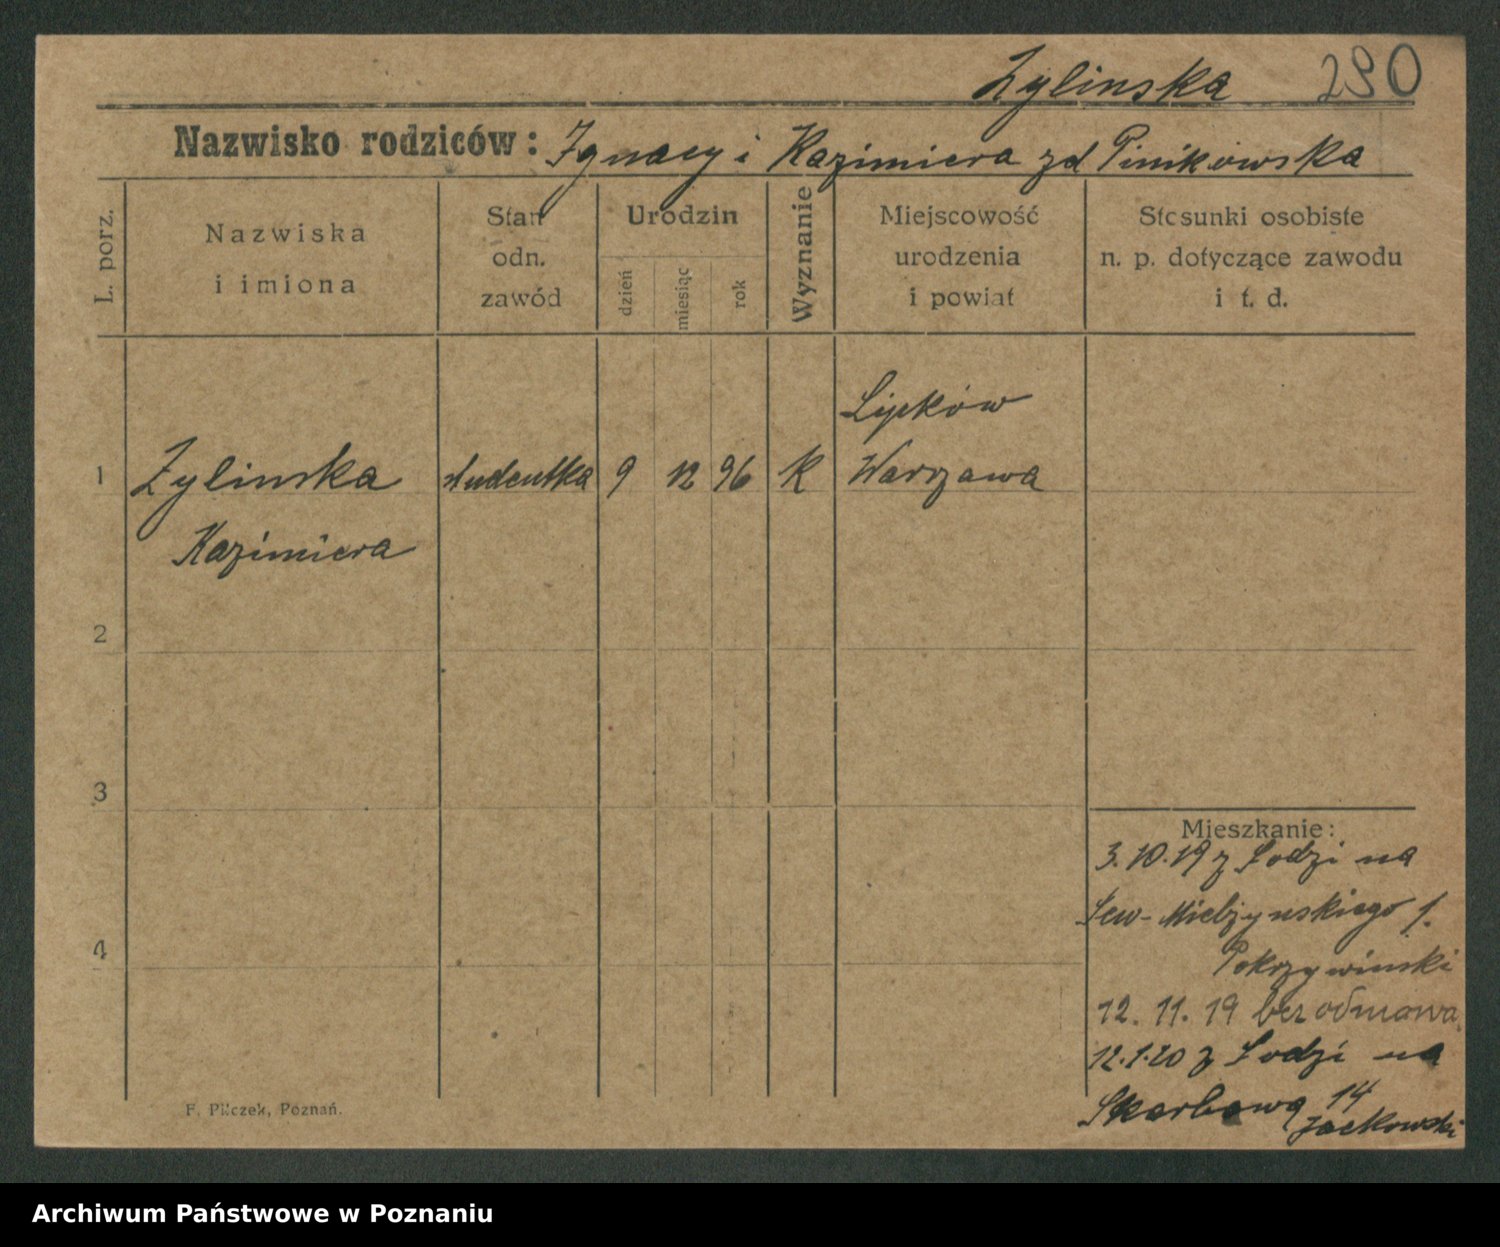 Zylinska 290
Nazwisko rodziców: Ignacy i Kazimiera zd Pinikowska
L. porz.
Nazwiska
i imiona
Stan
odn.
zawód
Urodzin
dzień
miesiąc
rok
Wyznanie
Miejscowość
urodzenia
i powiat
Stosunki osobiste
n. p. dotyczące zawodu
i t. d.
Lipków
1 Zylinska studentka 9 12 96 K Warszawa
Kazimiera
2
3
Mieszkanie:
3.10.19 z Lodzi na
Sew-Mielżynskiego 1.
Pokrzywinski
4
12. 11. 19 bez odmowa
12.1.20 z Lodzi na
Skarbową 14
Jackowski
F. Pilczek, Poznań.
Archiwum Państwowe w Poznaniu